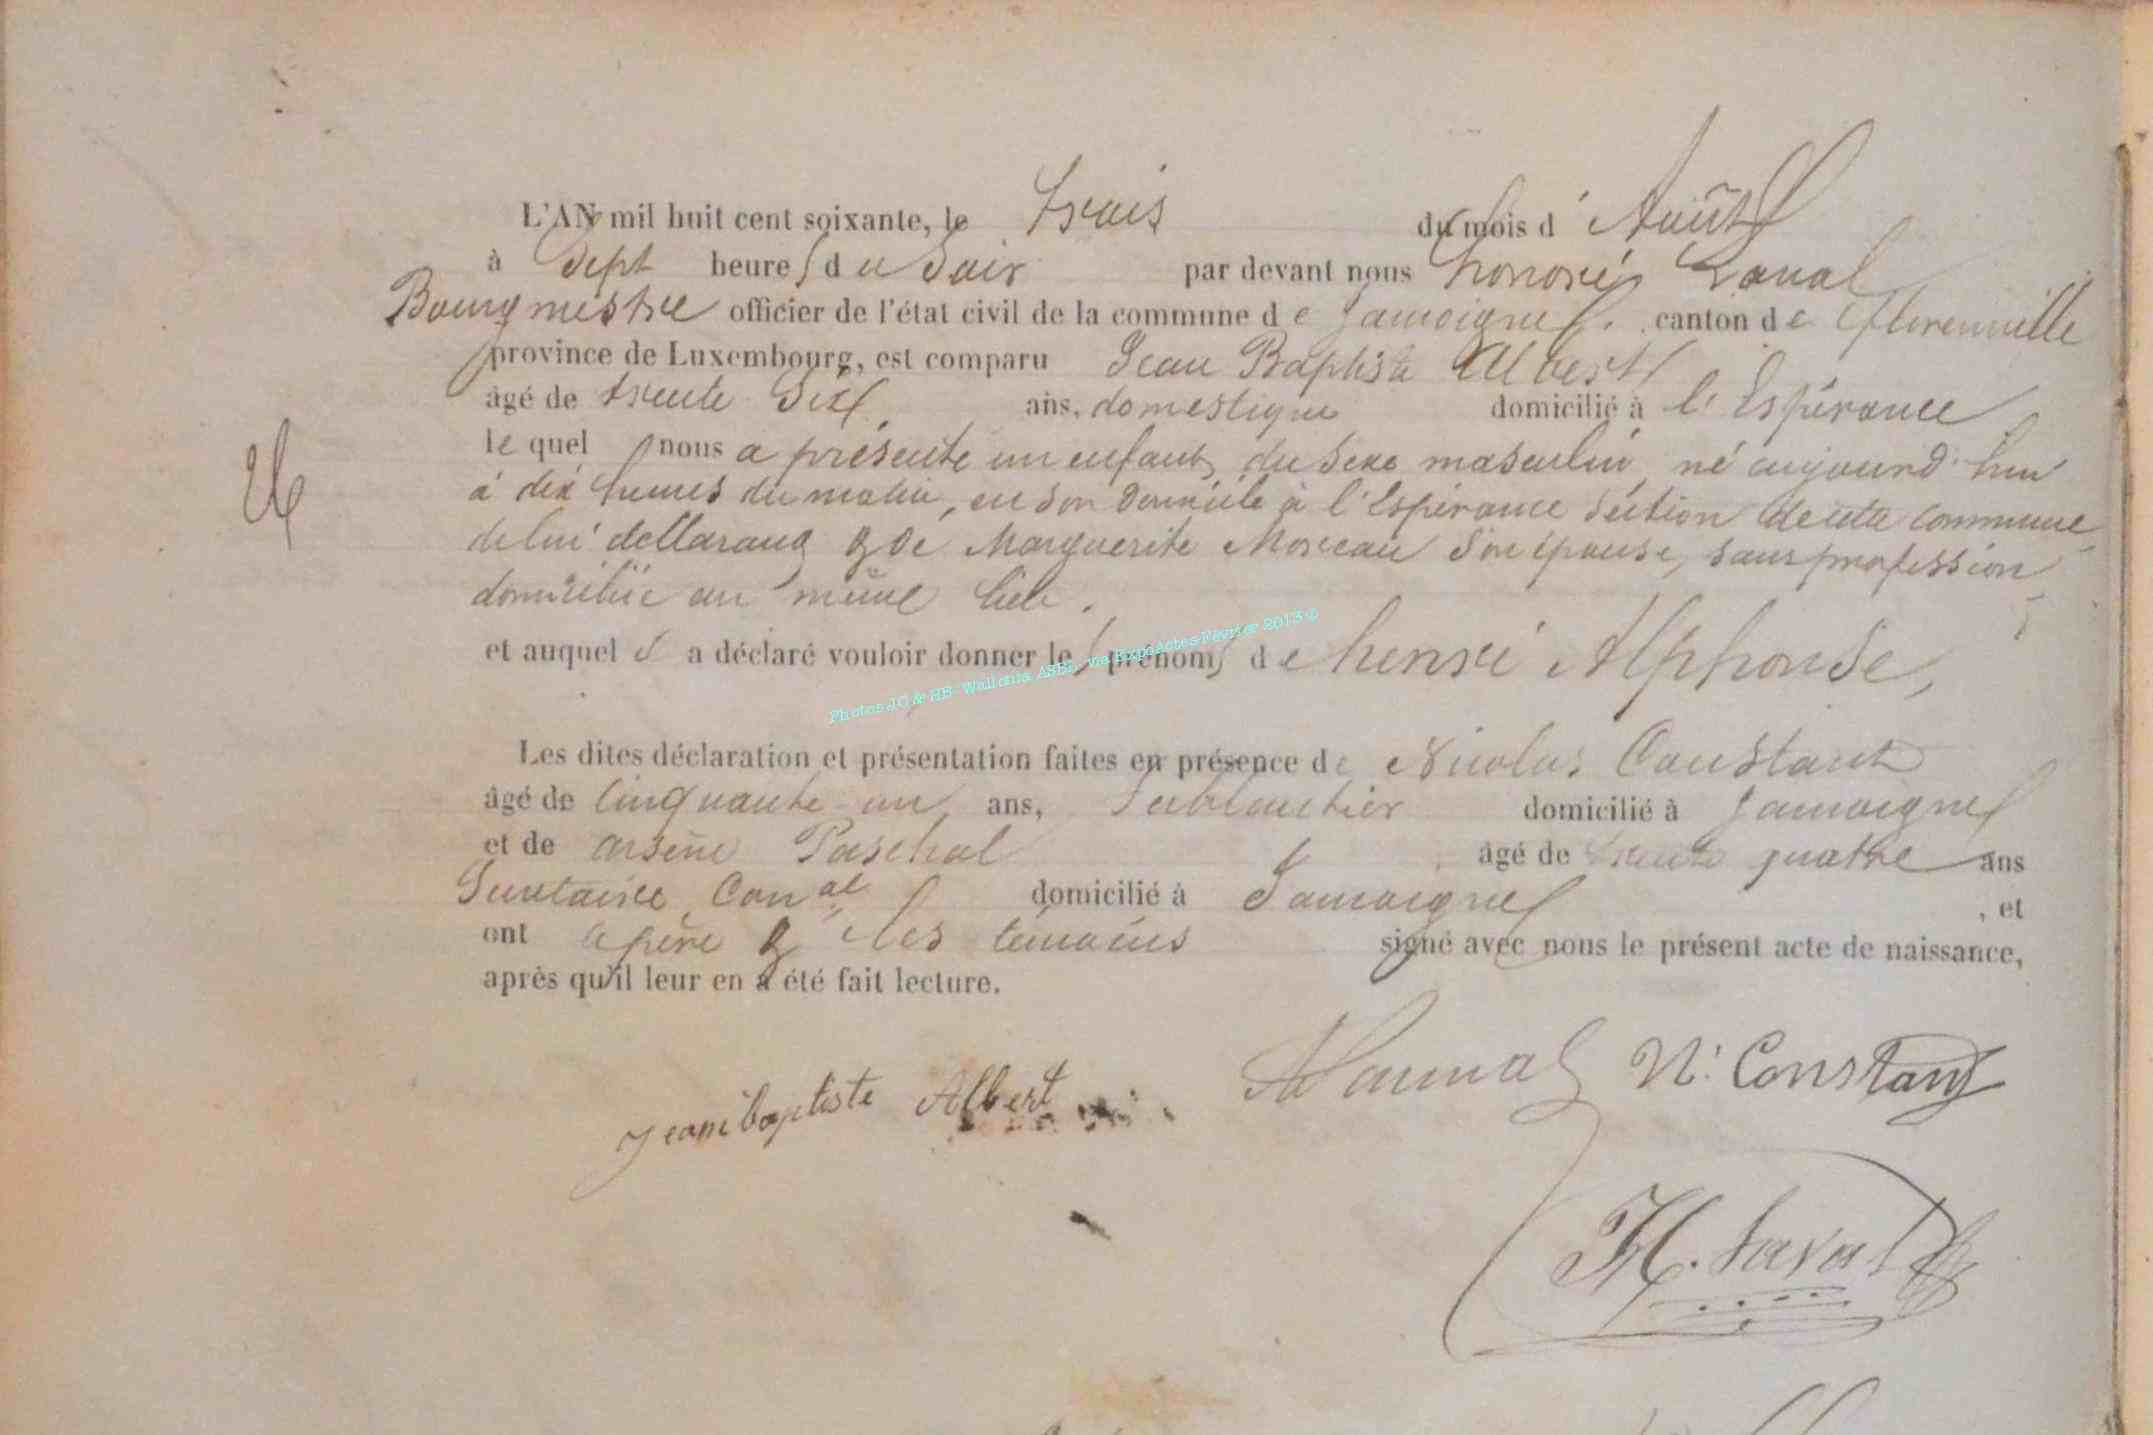 L'AN mil huit cent soixante, le trois du mois d'Août
à Sept heures du Soir par devant nous honoré Laval
Bourgmestre officier de l'état civil de la commune de Jamoigne, canton de Florenville
province de Luxembourg, est comparu Jean Baptiste Albert
âgé de trente Six ans, domestique domicilié à l'Espérance
le quel nous a présenté un enfant du Sexe masculin, né aujourd'hui
26
à dix heures du matin, en son domicile à l'Espérance section de cette commune
de lui déclarant & de Marguerite Moreau Son épouse, sans profession
domiciliée au même lieu.
et auquel il a déclaré vouloir donner les prénoms de henri Alphonse,
Photos JC & HB Wallonia ASBL via ExpoActes Février 2013 ©
Les dites déclaration et présentation faites en présence de Nicolas Constant
âgé de Cinquante un ans, ferblantier domicilié à Jamoigne
et de arsène Paschal âgé de trente quatre ans
Secrétaire Con^al domicilié à Jamoigne, et
ont le père & les témoins signé avec nous le présent acte de naissance,
après qu'il leur en a été fait lecture.
Jean baptiste Albert N. Constant
H. Laval